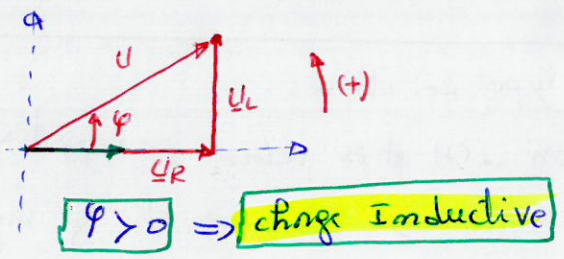 U
U_L
(+)
φ
U_R
φ > 0 => charge Inductive